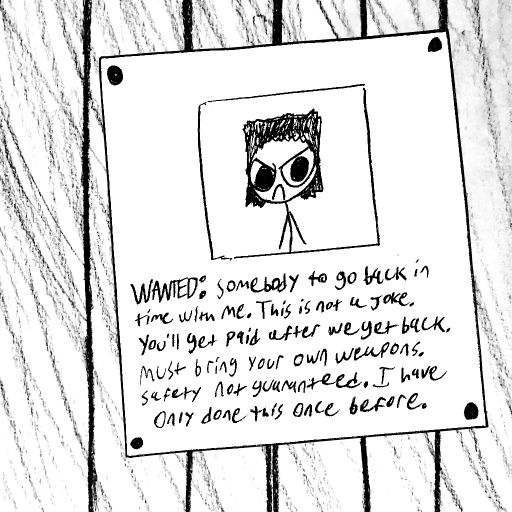 WANTED: Somebody to go back in
time with me. This is not a joke.
You'll get paid after we get back.
Must bring your own weapons.
safety not guaranteed. I have
only done this once before.